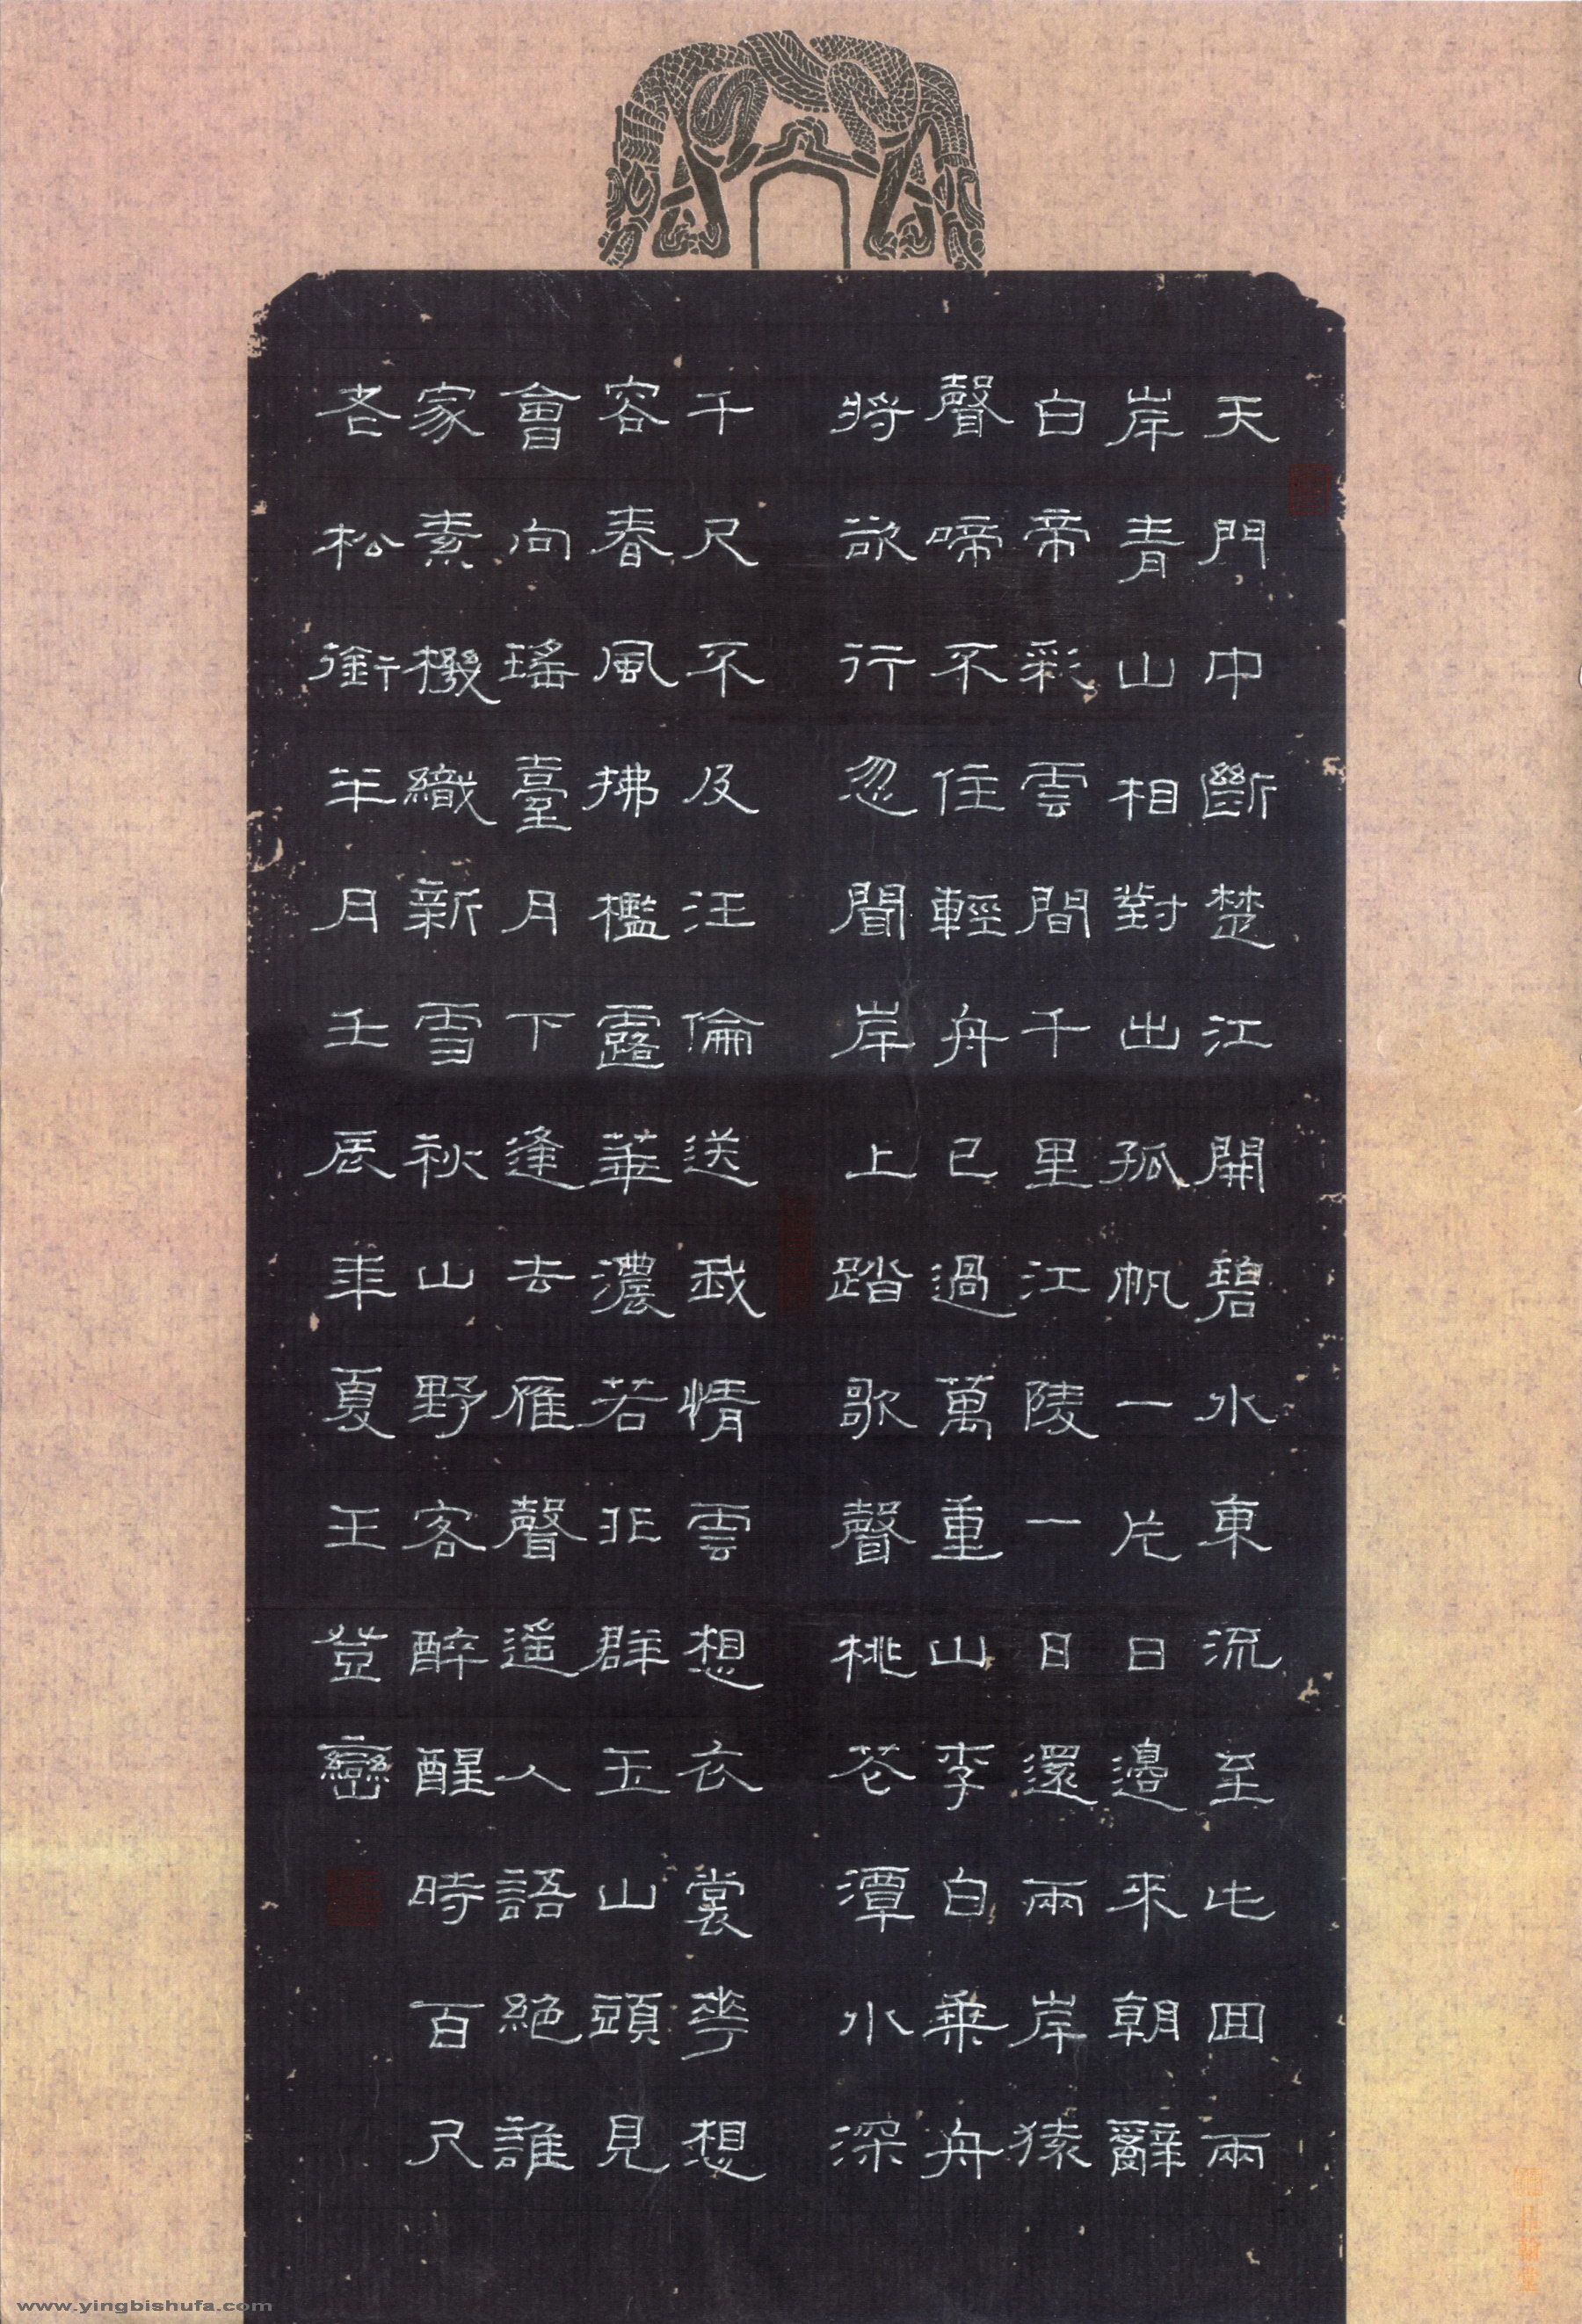 天門中斷楚江開碧水東流至此回兩
岸青山相對出孤帆一片日邊來朝辭
白帝彩雲間千里江陵一日還兩岸猿
聲啼不住輕舟已過萬重山李白乘舟
將欲行忽聞岸上踏歌聲桃花潭水深
千尺不及汪倫送我情雲想衣裳花想
容春風拂檻露華濃若非群玉山頭見
會向瑤臺月下逢去雁聲遥人語絕誰
家素機織新雪秋山野客醉醒時百尺
老松銜半月壬辰年夏王登巒
www.yingbishufa.com